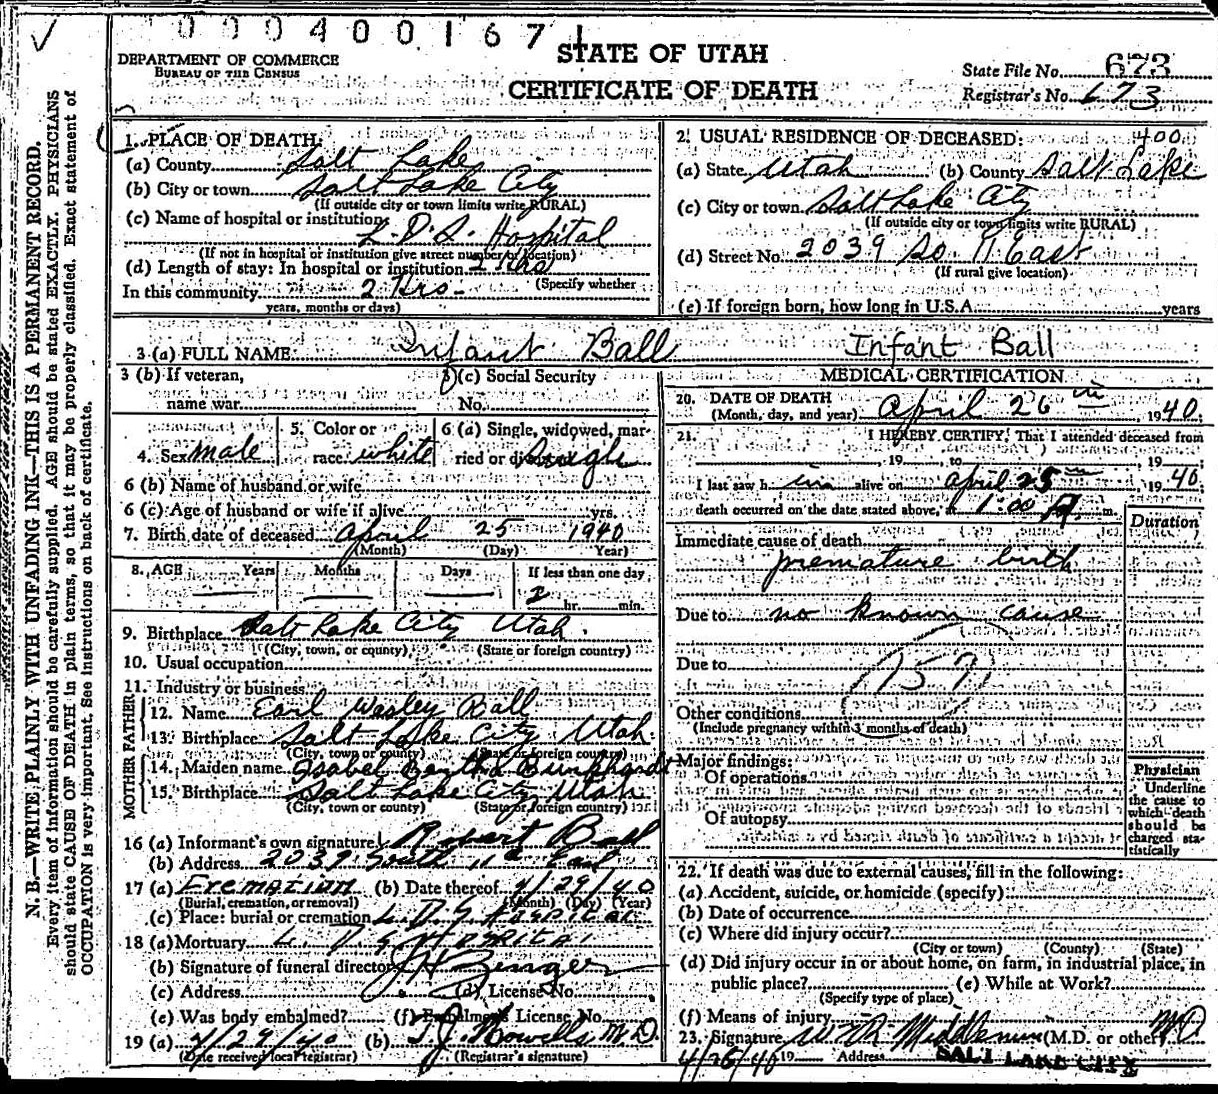 000400167
STATE OF UTAH
CERTIFICATE OF DEATH
DEPARTMENT OF COMMERCE
BUREAU OF THE CENSUS
State File No. 673
Registrar's No. 673
N. B.—WRITE PLAINLY WITH UNFADING INK—THIS IS A PERMANENT RECORD.
Every item of information should be carefully supplied. AGE should be stated EXACTLY. PHYSICIANS
should state CAUSE OF DEATH in plain terms, so that it may be properly classified. Exact statement of
OCCUPATION is very important. See instructions on back of certificate.
1. PLACE OF DEATH:
(a) County Salt Lake
(b) City or town Salt Lake City
(If outside city or town limits write RURAL)
(c) Name of hospital or institution:
L. D. S. Hospital
(If not in hospital or institution give street number or location)
(d) Length of stay: In hospital or institution 2 Hrs
(Specify whether
In this community 2 Hrs.
years, months or days)
2. USUAL RESIDENCE OF DECEASED: 400
(a) State Utah (b) County Salt Lake
(c) City or town Salt Lake City
(If outside city or town limits write RURAL)
(d) Street No. 2039 So. 11 East
(If rural give location)
(e) If foreign born, how long in U.S.A. years
3 (a) FULL NAME Infant Ball Infant Ball
3 (b) If veteran,
name war
3 (c) Social Security
No.
4. Sex male
5. Color or
race white
6 (a) Single, widowed, mar-
ried or divorced Single
6 (b) Name of husband or wife
6 (c) Age of husband or wife if alive yrs.
7. Birth date of deceased April 25 1940
(Month) (Day) Year)
8. AGE Years Months Days If less than one day
2 hr. min.
9. Birthplace Salt Lake City Utah.
(City, town, or county) (State or foreign country)
10. Usual occupation
11. Industry or business
FATHER
12. Name Earl Wesley Ball
13. Birthplace Salt Lake City Utah
(City, town or county) (State or foreign country)
MOTHER
14. Maiden name Isabel Bertha Burkhardt
15. Birthplace Salt Lake City Utah
(City, town or county) (State or foreign country)
16 (a) Informant's own signature Robert Ball
(b) Address 2039 South 11th East
17 (a) Cremation (b) Date thereof 4/29/40
(Burial, cremation, or removal) (Month) (Day) (Year)
(c) Place: burial or cremation L. D. S Hospital
18 (a) Mortuary L. D. S. Hospital
(b) Signature of funeral director
(c) Address (d) License No.
(e) Was body embalmed? (f) Embalmer's License No.
19 (a) 4/29/40 (b) T. J. Howells M.D.
(Date received local registrar) (Registrar's signature)
MEDICAL CERTIFICATION
20. DATE OF DEATH
(Month, day, and year) April 26th 1940.
21. I HEREBY CERTIFY, That I attended deceased from
, 19 , to , 19
I last saw him alive on April 25th 1940.
death occurred on the date stated above, at 1:00 A. m.
Duration
Immediate cause of death
premature birth
Due to no known cause
Due to 159
Other conditions
(Include pregnancy within 3 months of death)
Major findings:
Of operations
Of autopsy
Physician
Underline
the cause to
which death
should be
charged sta-
tistically
22. If death was due to external causes, fill in the following:
(a) Accident, suicide, or homicide (specify)
(b) Date of occurrence
(c) Where did injury occur?
(City or town) (County) (State)
(d) Did injury occur in or about home, on farm, in industrial place, in
public place? (e) While at Work?
(Specify type of place)
(f) Means of injury
23. Signature W. R. Middlemiss (M.D. or other) MD
4/26/40 19 Address SALT LAKE CITY